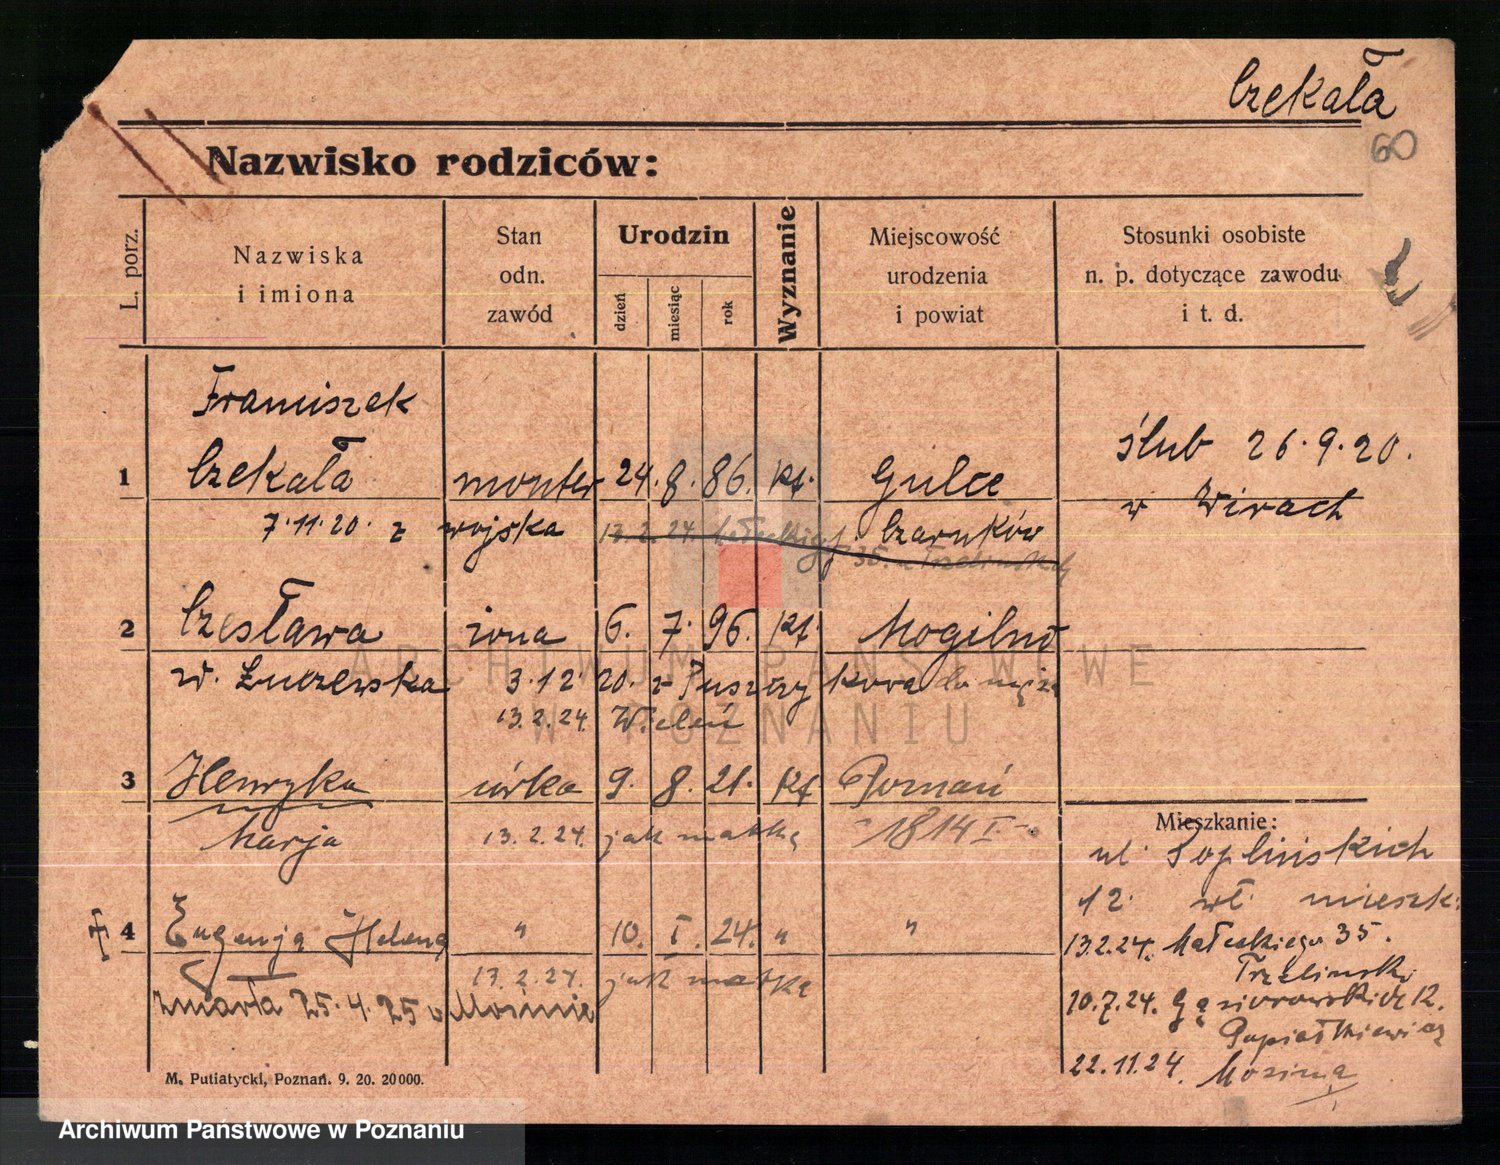 Czekała
60
Nazwisko rodziców:
L. porz.
Nazwiska
i imiona
Stan
odn.
zawód
Urodzin
dzień
miesiąc
rok
Wyznanie
Miejscowość
urodzenia
i powiat
Stosunki osobiste
n. p. dotyczące zawodu
i t. d.
Franciszek
1 Czekała monter 24. 8. 86. kt. Gulcz
7.11.20. z wojska 13.2.24. Małeckiego 35. Czarnków
ślub 26.9.20.
w Wirach
2 Czesława żona 6. 7. 96. kt. Mogilno
3.12 20. z Puszczykowa do męża
13.2.24. Wieleń
3 Henryka córka 9. 8. 21. kt Poznań
Marja 13.2.24. jak matka 1814 I
4 Eugenja Helena " 10. I. 24. " "
13.2.24. jak matka
zmarła 25.4.25 w Mosinie
Mieszkanie:
ul.
12. wł. mieszk.
13.2.24. Małeckiego 35.
10.7.24. Gąsiorowskich 12.
22.11.24. Mosina
M. Putiatycki, Poznań. 9. 20. 20000.
ARCHIWUM PAŃSTWOWE
W POZNANIU
Archiwum Państwowe w Poznaniu